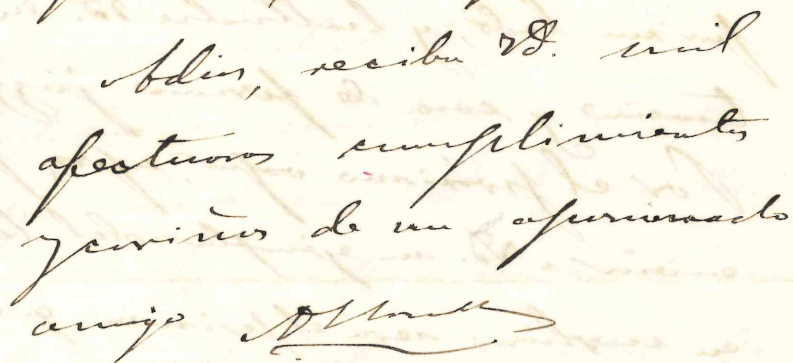 Adios, reciba Vd. mil
afectuosos cumplimientos
y cariños de un apasionado
amigo